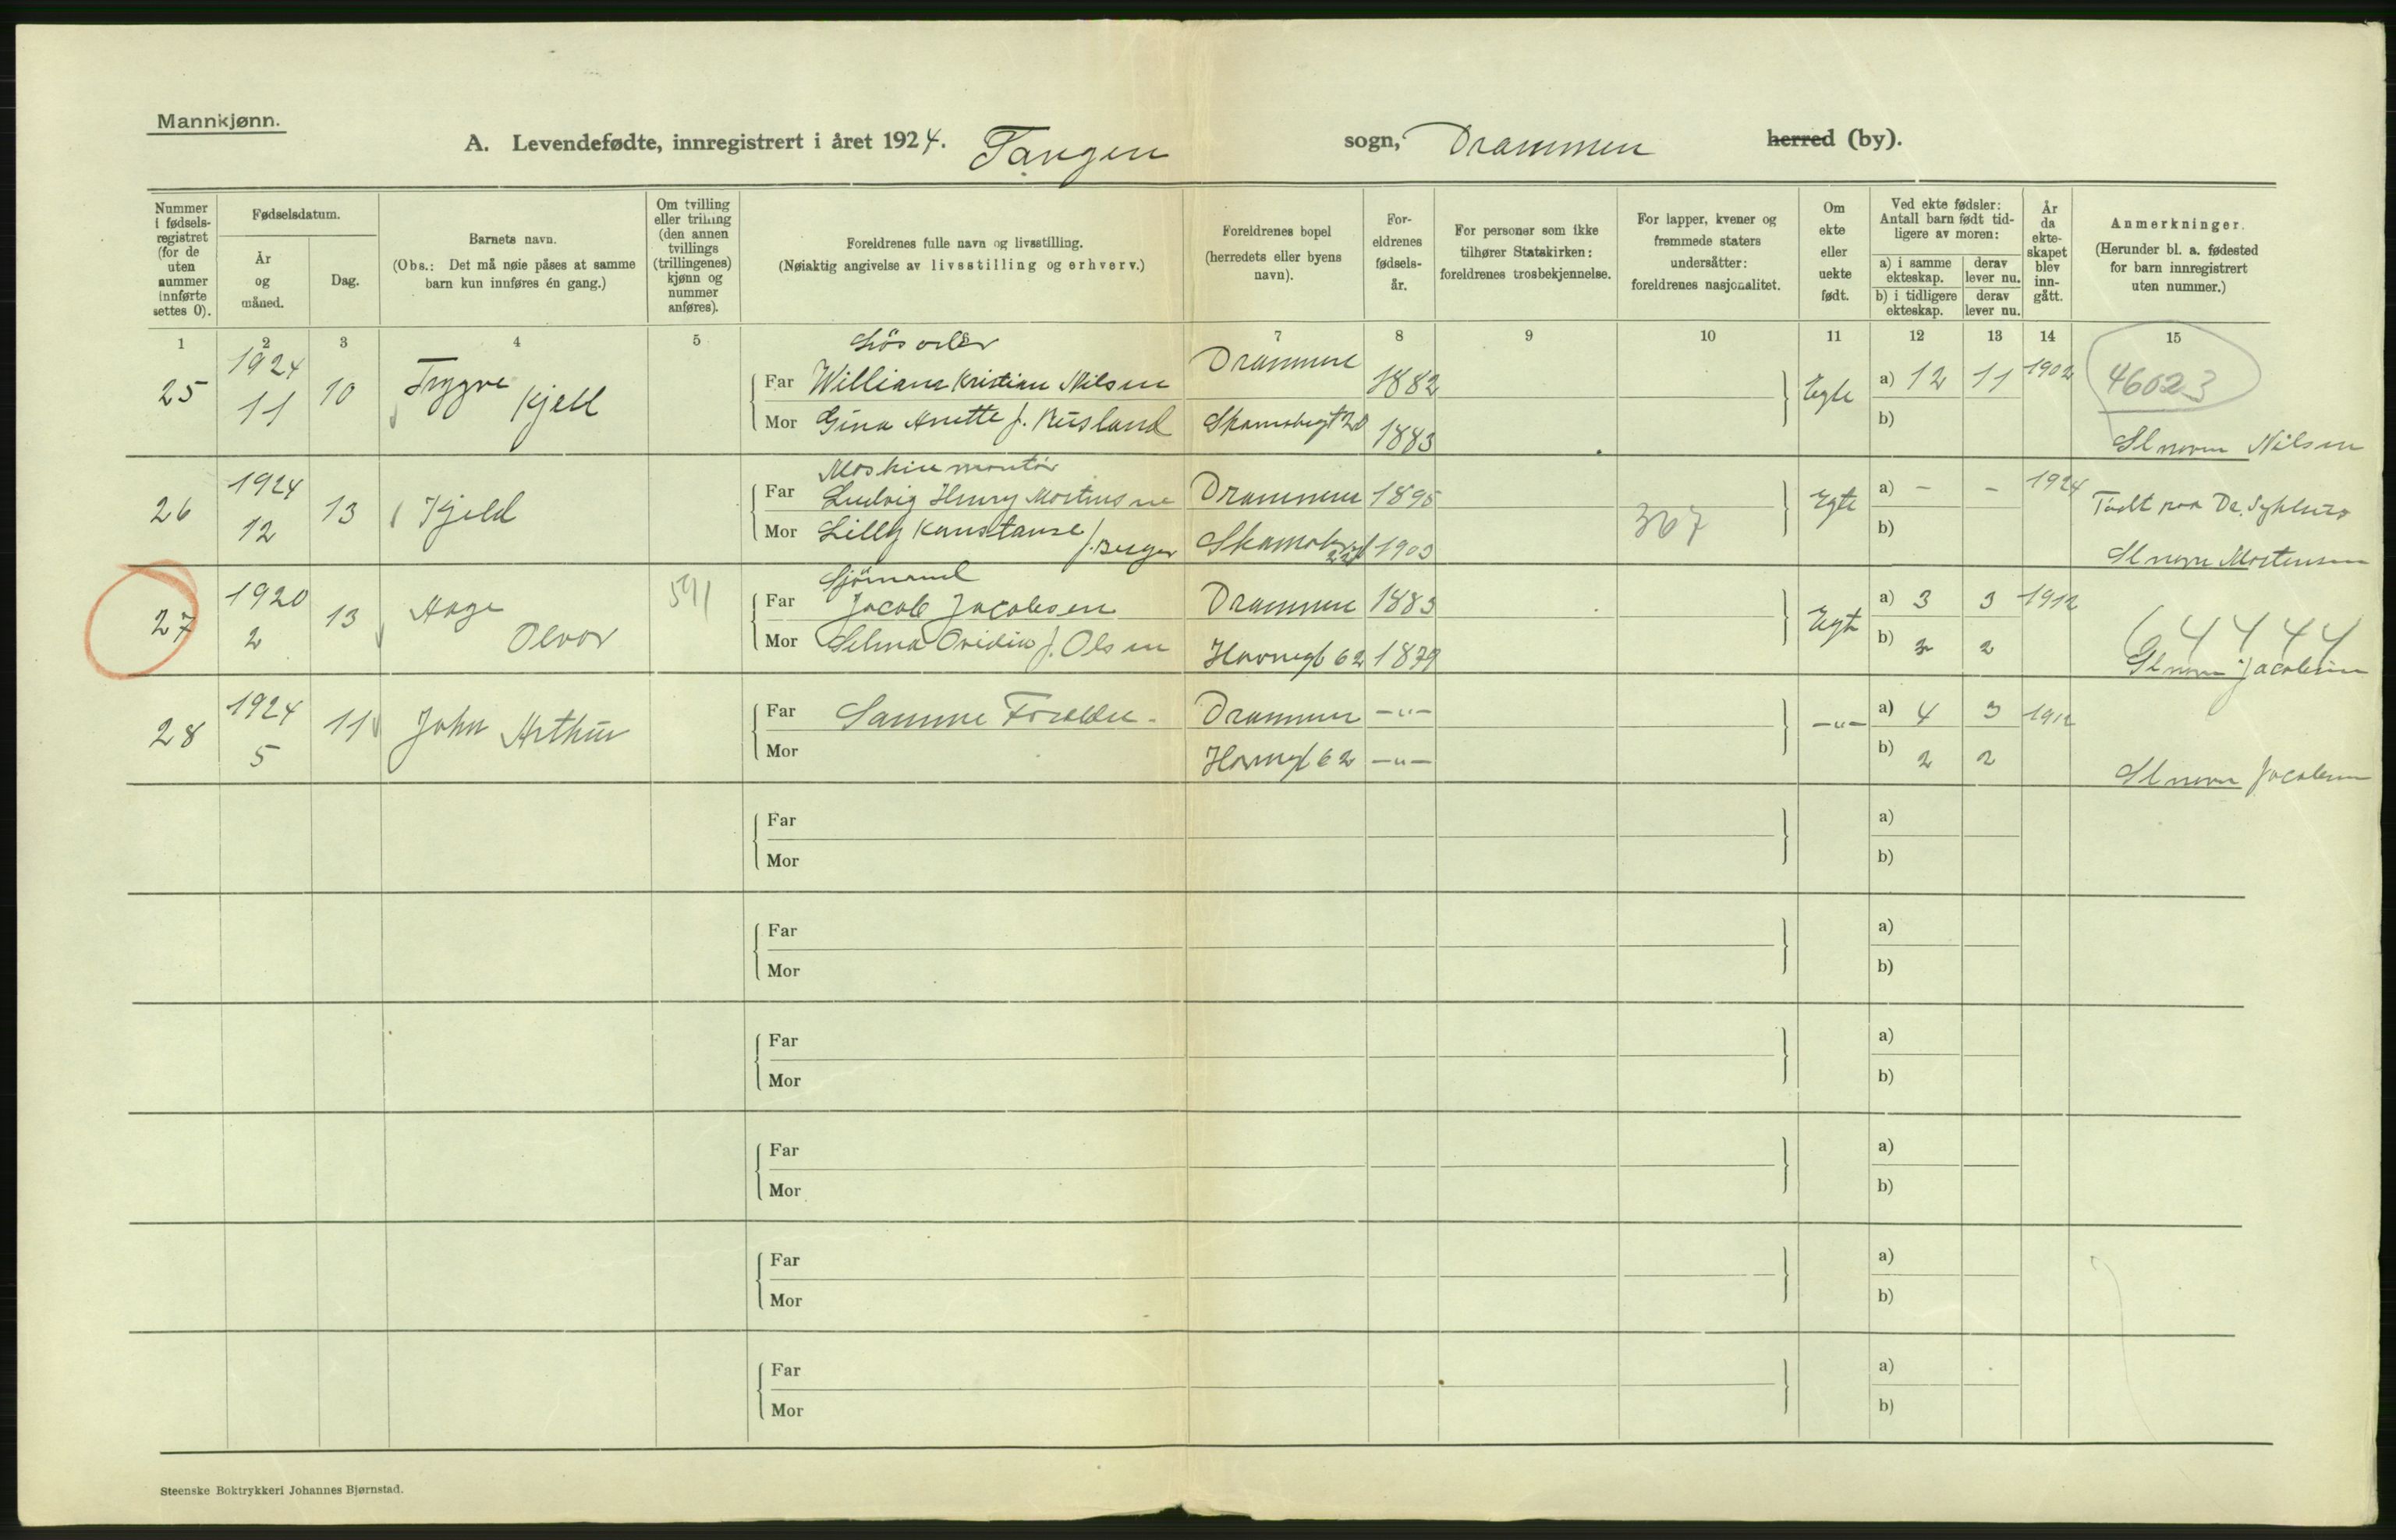 Mannkjønn.
A. Levendefødte, innregistrert i året 1924. Tangen sogn, Drammen herred (by).
Nummer i fødsels-registret (for de uten nummer innførte settes 0).
Fødselsdatum.
År og måned.
Dag.
Barnets navn.
(Obs.: Det må nøie påses at samme barn kun innføres én gang.)
Om tvilling eller trilling (den annen tvillings (trillingenes) kjønn og nummer anføres).
Foreldrenes fulle navn og livsstilling.
(Nøiaktig angivelse av livsstilling og erhverv.)
Foreldrenes bopel
(herredets eller byens navn).
For-eldrenes fødsels-år.
For personer som ikke tilhører Statskirken: foreldrenes trosbekjennelse.
For lapper, kvener og fremmede staters undersåtter: foreldrenes nasjonalitet.
Om ekte eller uekte født.
Ved ekte fødsler: Antall barn født tid-ligere av moren:
a) i samme ekteskap.
derav lever nu.
b) i tidligere ekteskap.
derav lever nu.
År da ekte-skapet blev inn-gått.
Anmerkninger.
(Herunder bl. a. fødested for barn innregistrert uten nummer.)
1 2 3 4 5 7 8 9 10 11 12 13 14 15
25 1924 11 10 Trygve Kjell
Far William Kristian Nilsen Drammen 1882
Mor Gina Anette f. 1883
Egte a) 12 11 1902
b)
46023
Sl navn Nilsen
26 1924 12 13 Kjeld
Maskinmontör
Far Ludvig Henry Mortensen Drammen 1895
Mor Lilly Konstanse f. Berger 1903
367
Egte a) - - 1924
b)
Födt paa Dr. Sykehus
Sl navn Mortensen
27 1920 2 13 Aage
591
Sjömand
Far Jacob Jacobsen Drammen 1883
Mor Selma Ovidia f. Olsen Havnegt 62 1879
Egte a) 3 3 1912
b) 2
64444
Sl navn Jacobsen
28 1924 5 11 John Arthur
Far Samme Forældre - Drammen -"-
Mor Havnegt 62 -"-
-"- a) 4 3 1912
b) 2 2
Sl navn Jacobsen
Far a)
Mor b)
Far a)
Mor b)
Far a)
Mor b)
Far a)
Mor b)
Far a)
Mor b)
Far a)
Mor b)
Steenske Boktrykkeri Johannes Bjørnstad.